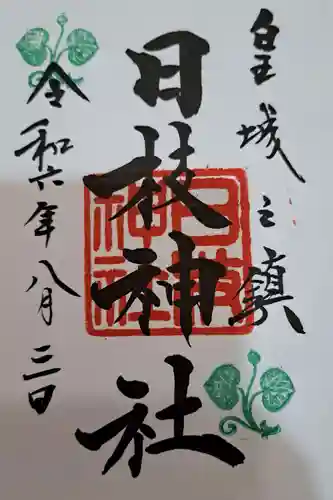 皇城之鎮
日枝神社
令和六年八月三日
日枝神社